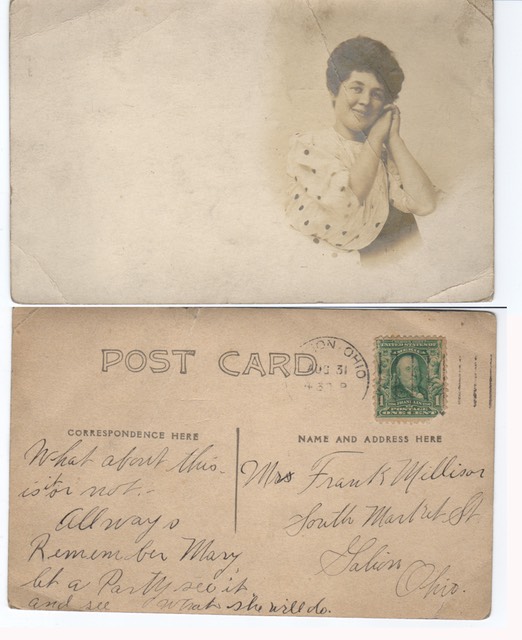 POST CARD
ION, OHIO
AUG 31
4 30 P
UNITED STATES OF AMERICA
1 1
POSTAGE
ONE CENT
CORRESPONDENCE HERE
NAME AND ADDRESS HERE
What about this
is it or not.
Allways
Remember Mary,
let a Party see it
and see what she will do.
Mrs Frank Millisor
South Market St
Galion
Ohio.